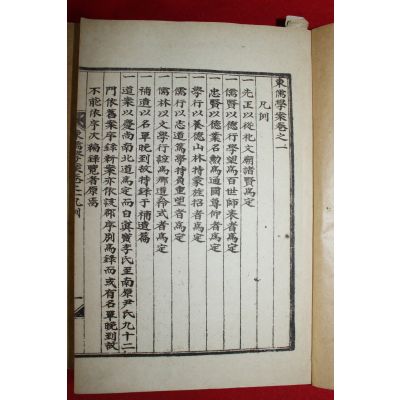 東儒學案卷之一
凡例
一先正以從祀文廟諸賢爲定
一儒賢以德行學望爲百世師表者爲定
一忠賢以德業名勳爲通國尊仰者爲定
一學行以養德山林特蒙旌招者爲定
一儒行以志道篤學持負重望者爲定
一儒林以文學行誼爲鄕道矜式者爲定
一補遺以名單晩到故特錄于補遺篇
一道案以慶尙南北道爲定而自眞寶李氏至南原尹氏九十二
門依舊案序錄新案亦依該郡序列爲錄而或有名單晩到故
不能依序次編錄覽者原焉
東儒學案卷之一凡例
一